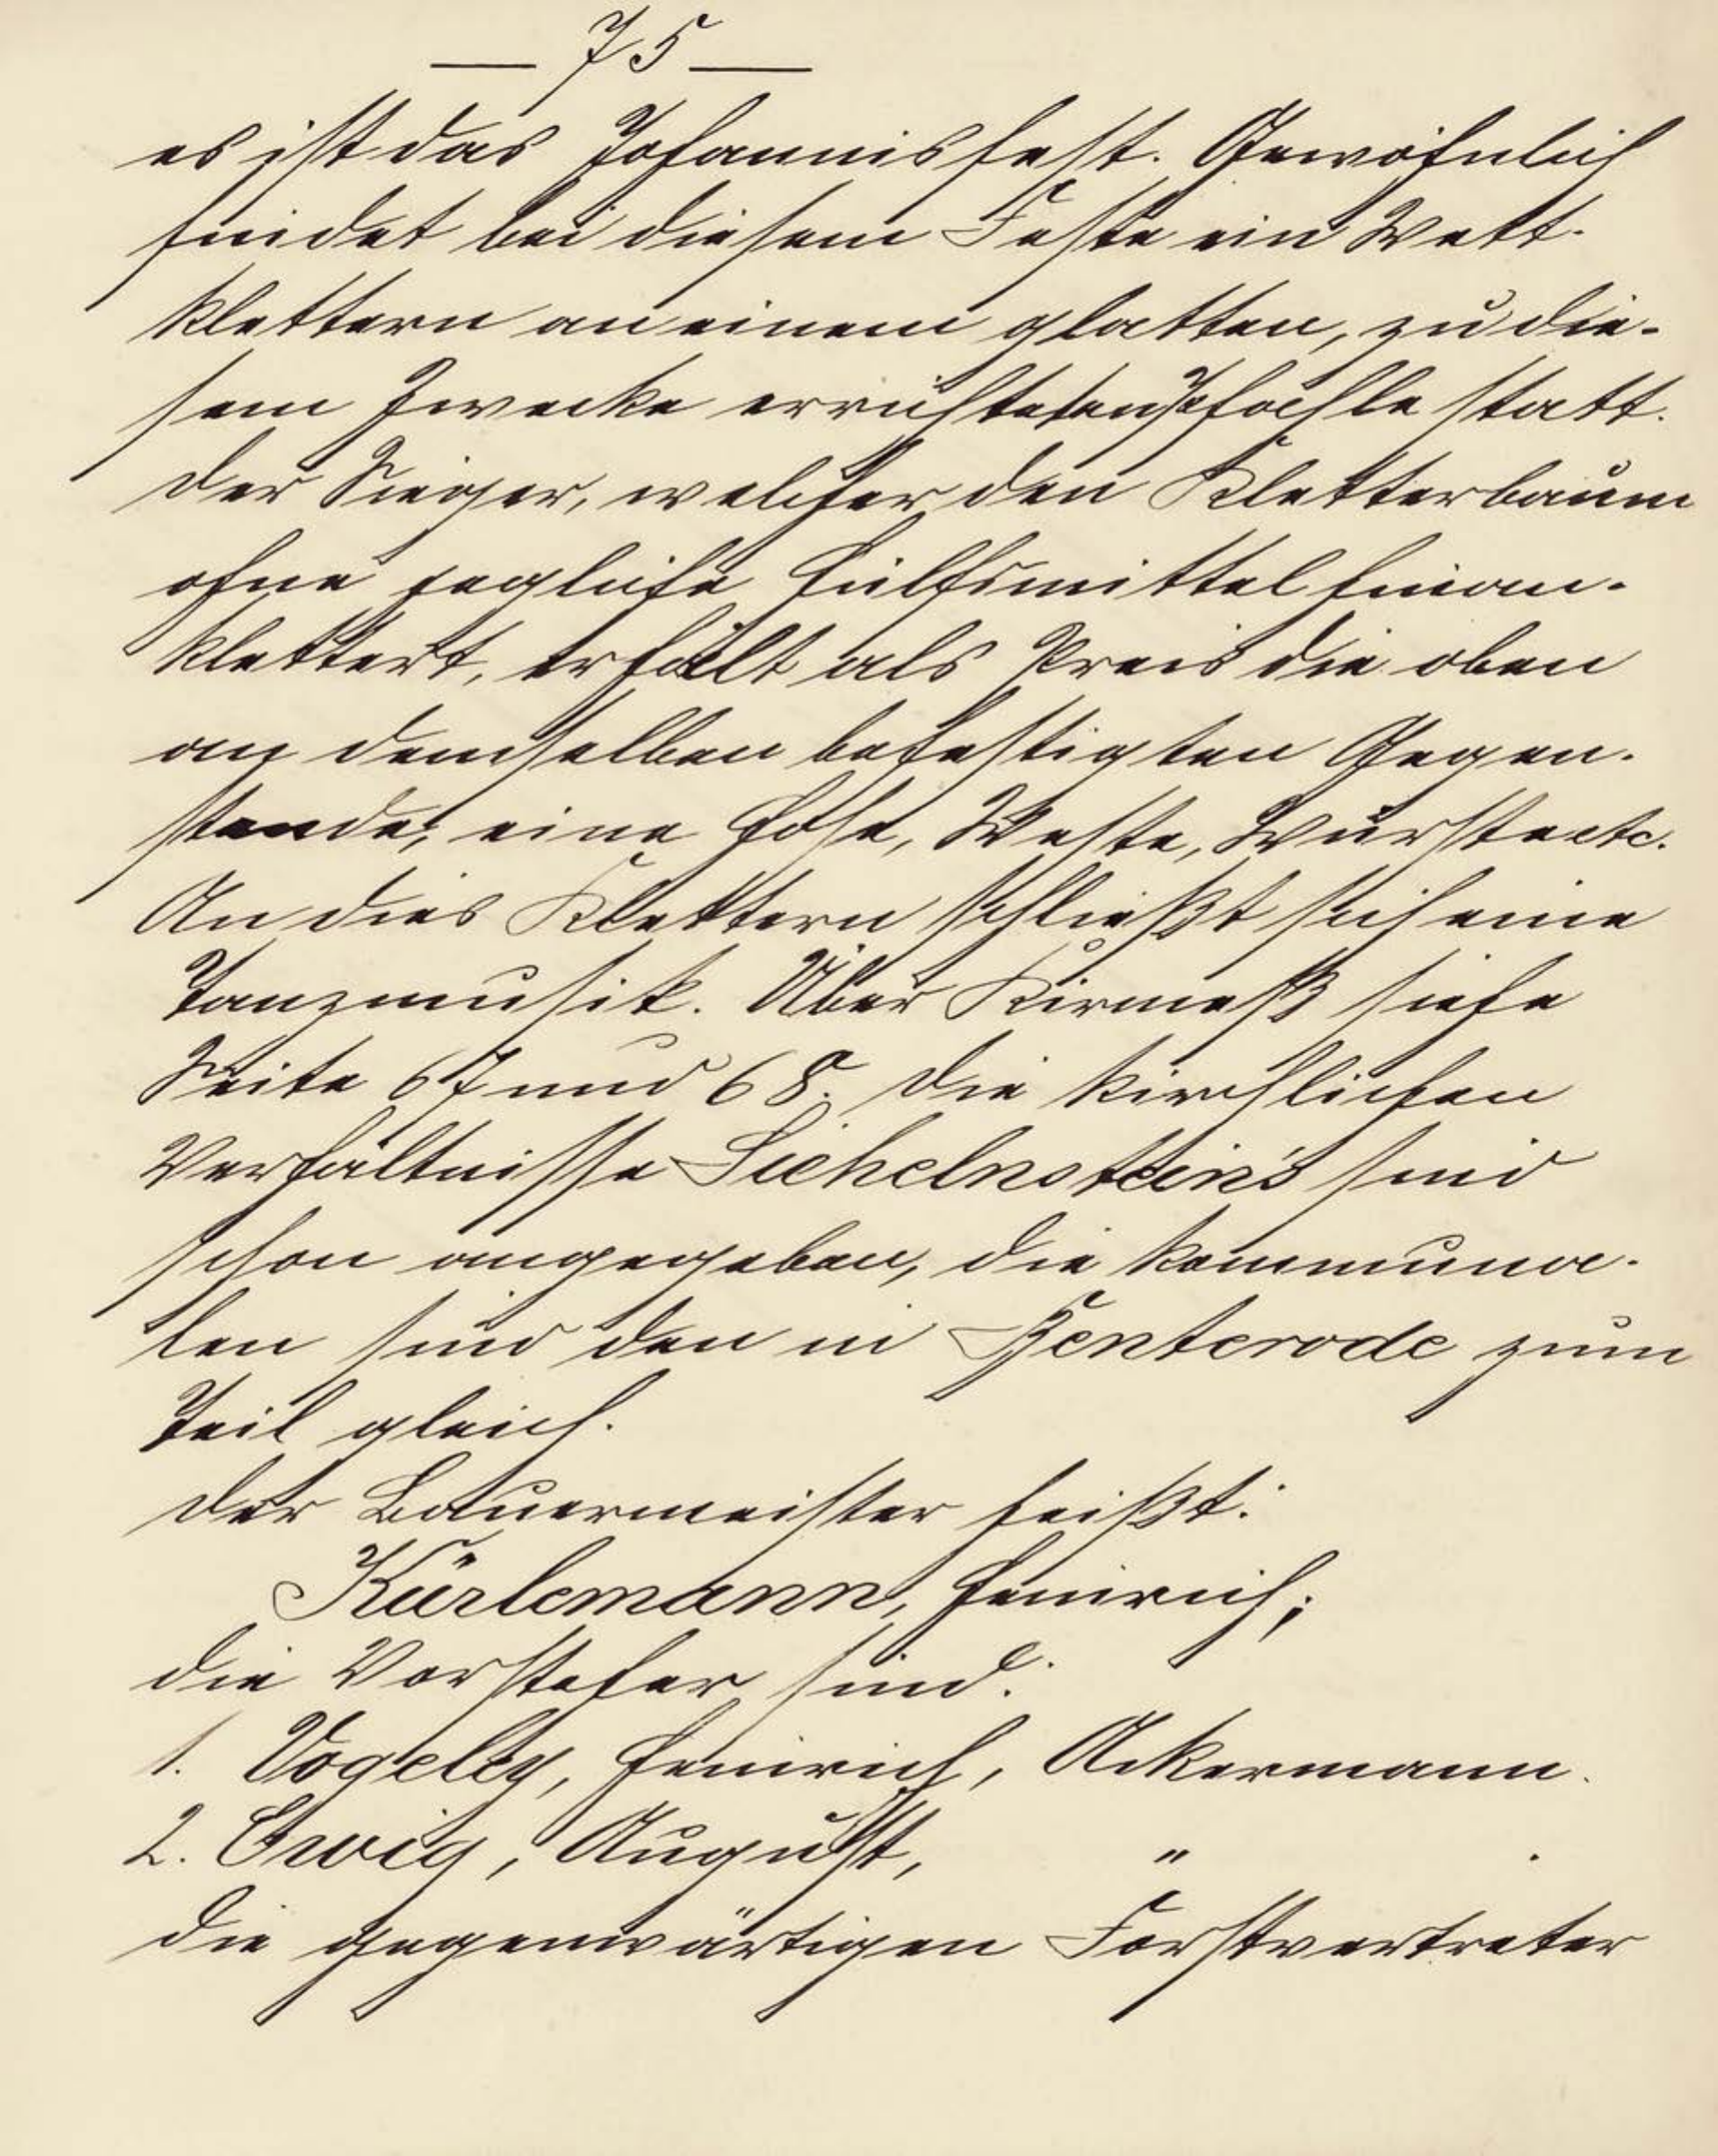 — 75 —
es ist das Johannisfest. Gewöhnlich
findet bei diesem Feste ein Wett-
klettern an einem glatten, zu die-
sem Zwecke errichteten Pfahle statt.
Der Sieger, welcher den Kletterbaum
ohne jegliche Hülfsmittel hinan-
klettert, erhält als Preis die oben
an demselben befestigten Gegen-
stande; eine Hose, Weste, Würste etc.
An dies Klettern schließt sich eine
Tanzmusik. Über Kirmeß siehe
Seite 67 und 68. Die kirchlichen
Verhältnisse Sichelnstein's sind
schon angegeben, die kommuna-
len sind den in Benterode zum
Teil gleich.
Der Bauermeister heißt:
Kürlemann, Heinrich;
die Vorsteher sind:
1. Vogeley, Heinrich, Ackermann.
2. Ewig, August, " .
Die gegenwärtigen Forstvertreter